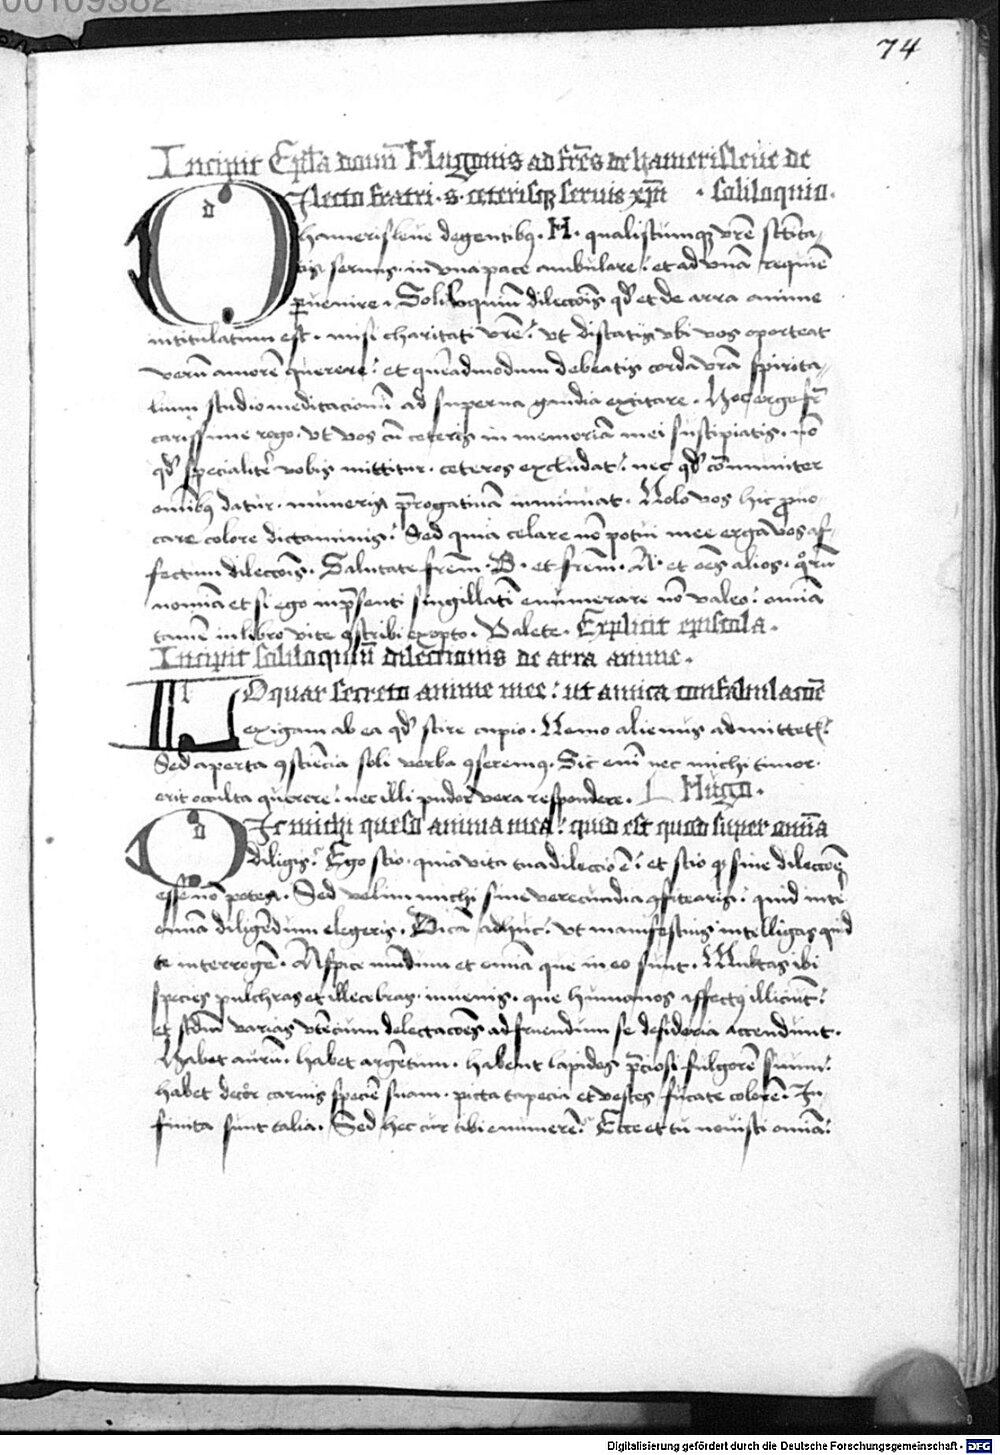 00109382
74
Incipit Epl̄a domī Hugonis ad fr̄es de hamerisleue de
Ilecto fratri · s · ceterisq̨ seruis xp̄i · soliloquio ·
hamerisleue degentibꝰ · H · qualiscumq̨ vr̄e sc̄ita-
tis seruus · in vna pace ambulare : et ad vnā requiē
ꝑuenire · Soliloquiū dilecc̄ois qd̄ et de arra anime
intitulatum est · misi charitati vr̄e : vt discatis vbi vos oporteat
verū amorē querere : et quēadmodum debeatis corda vr̄a spirita-
lium studio meditacionū ad superna gaudia excitare · Hoc ergo fr̄
carissime rogo · vt vos cū ceteris in memoriā mei suscipiatis · nō
qd̄ specialit̄ vobis mittitur · ceteros excludat : nec qd̄ cōmuniter
om̄ibꝰ datur · muneris p̄rogatiuā inminuat · Nolo vos hic ꝓuo-
care colore dictaminis : Sed quia celare nō potui mee erga vos af-
fectum dilecc̄ois · Salutate fr̄em · B · et fr̄em · A · et oēs alios · qͦrū
nomīa et si ego in p̄senti singillatī enumerare nō valeo : om̄ia
tamē in libro vite ꝯscribi exopto · Valete · Explicit epistola ·
Incipit soliloquiū dilectionis de arra anime ·
l
LOquar secreto anime mee : ut amica confabulac̄oe
exigam ab ea qd̄ scire cupio · Nemo alienus admittet̄ :
Sed aperta ꝯsciēcia soli verba ꝯseremꝰ · Sic em̄ nec michi timor
erit occulta querere : nec illi pudor vera respondere · Hugo ·
d
Ic michi queso anima mea : quid est quod super om̄ia
diligis : Ego scio · quia vita tua dileccio ē : et scio qꝫ sine dilecc̄oe
esse nō potes · Sed velim michi sine verecundia ꝯfitearis : quid inter
om̄ia diligēdum elegeris · Dicā adhuc : vt manifestius intelligas quid
te interrogē · Aspice mūdum et om̄ia que in eo sunt · Multas ibi
species pulchras et illecebras inuenis · que humanos affectꝰ illiciūt :
et scd̄m varias vtēcium delectac̄oes ad fruendum se desideria accendunt ·
Habet aurū · habet argētum · habent lapides p̄ciosi fulgorē suum :
habet decōr carnis speciē suam · picta tapecia et vestes fucate colorē · In-
finita sunt talia · Sed hec cur tibi enumerē : Ecce et tu nouisti om̄ia :
Digitalisierung gefördert durch die Deutsche Forschungsgemeinschaft - DFG